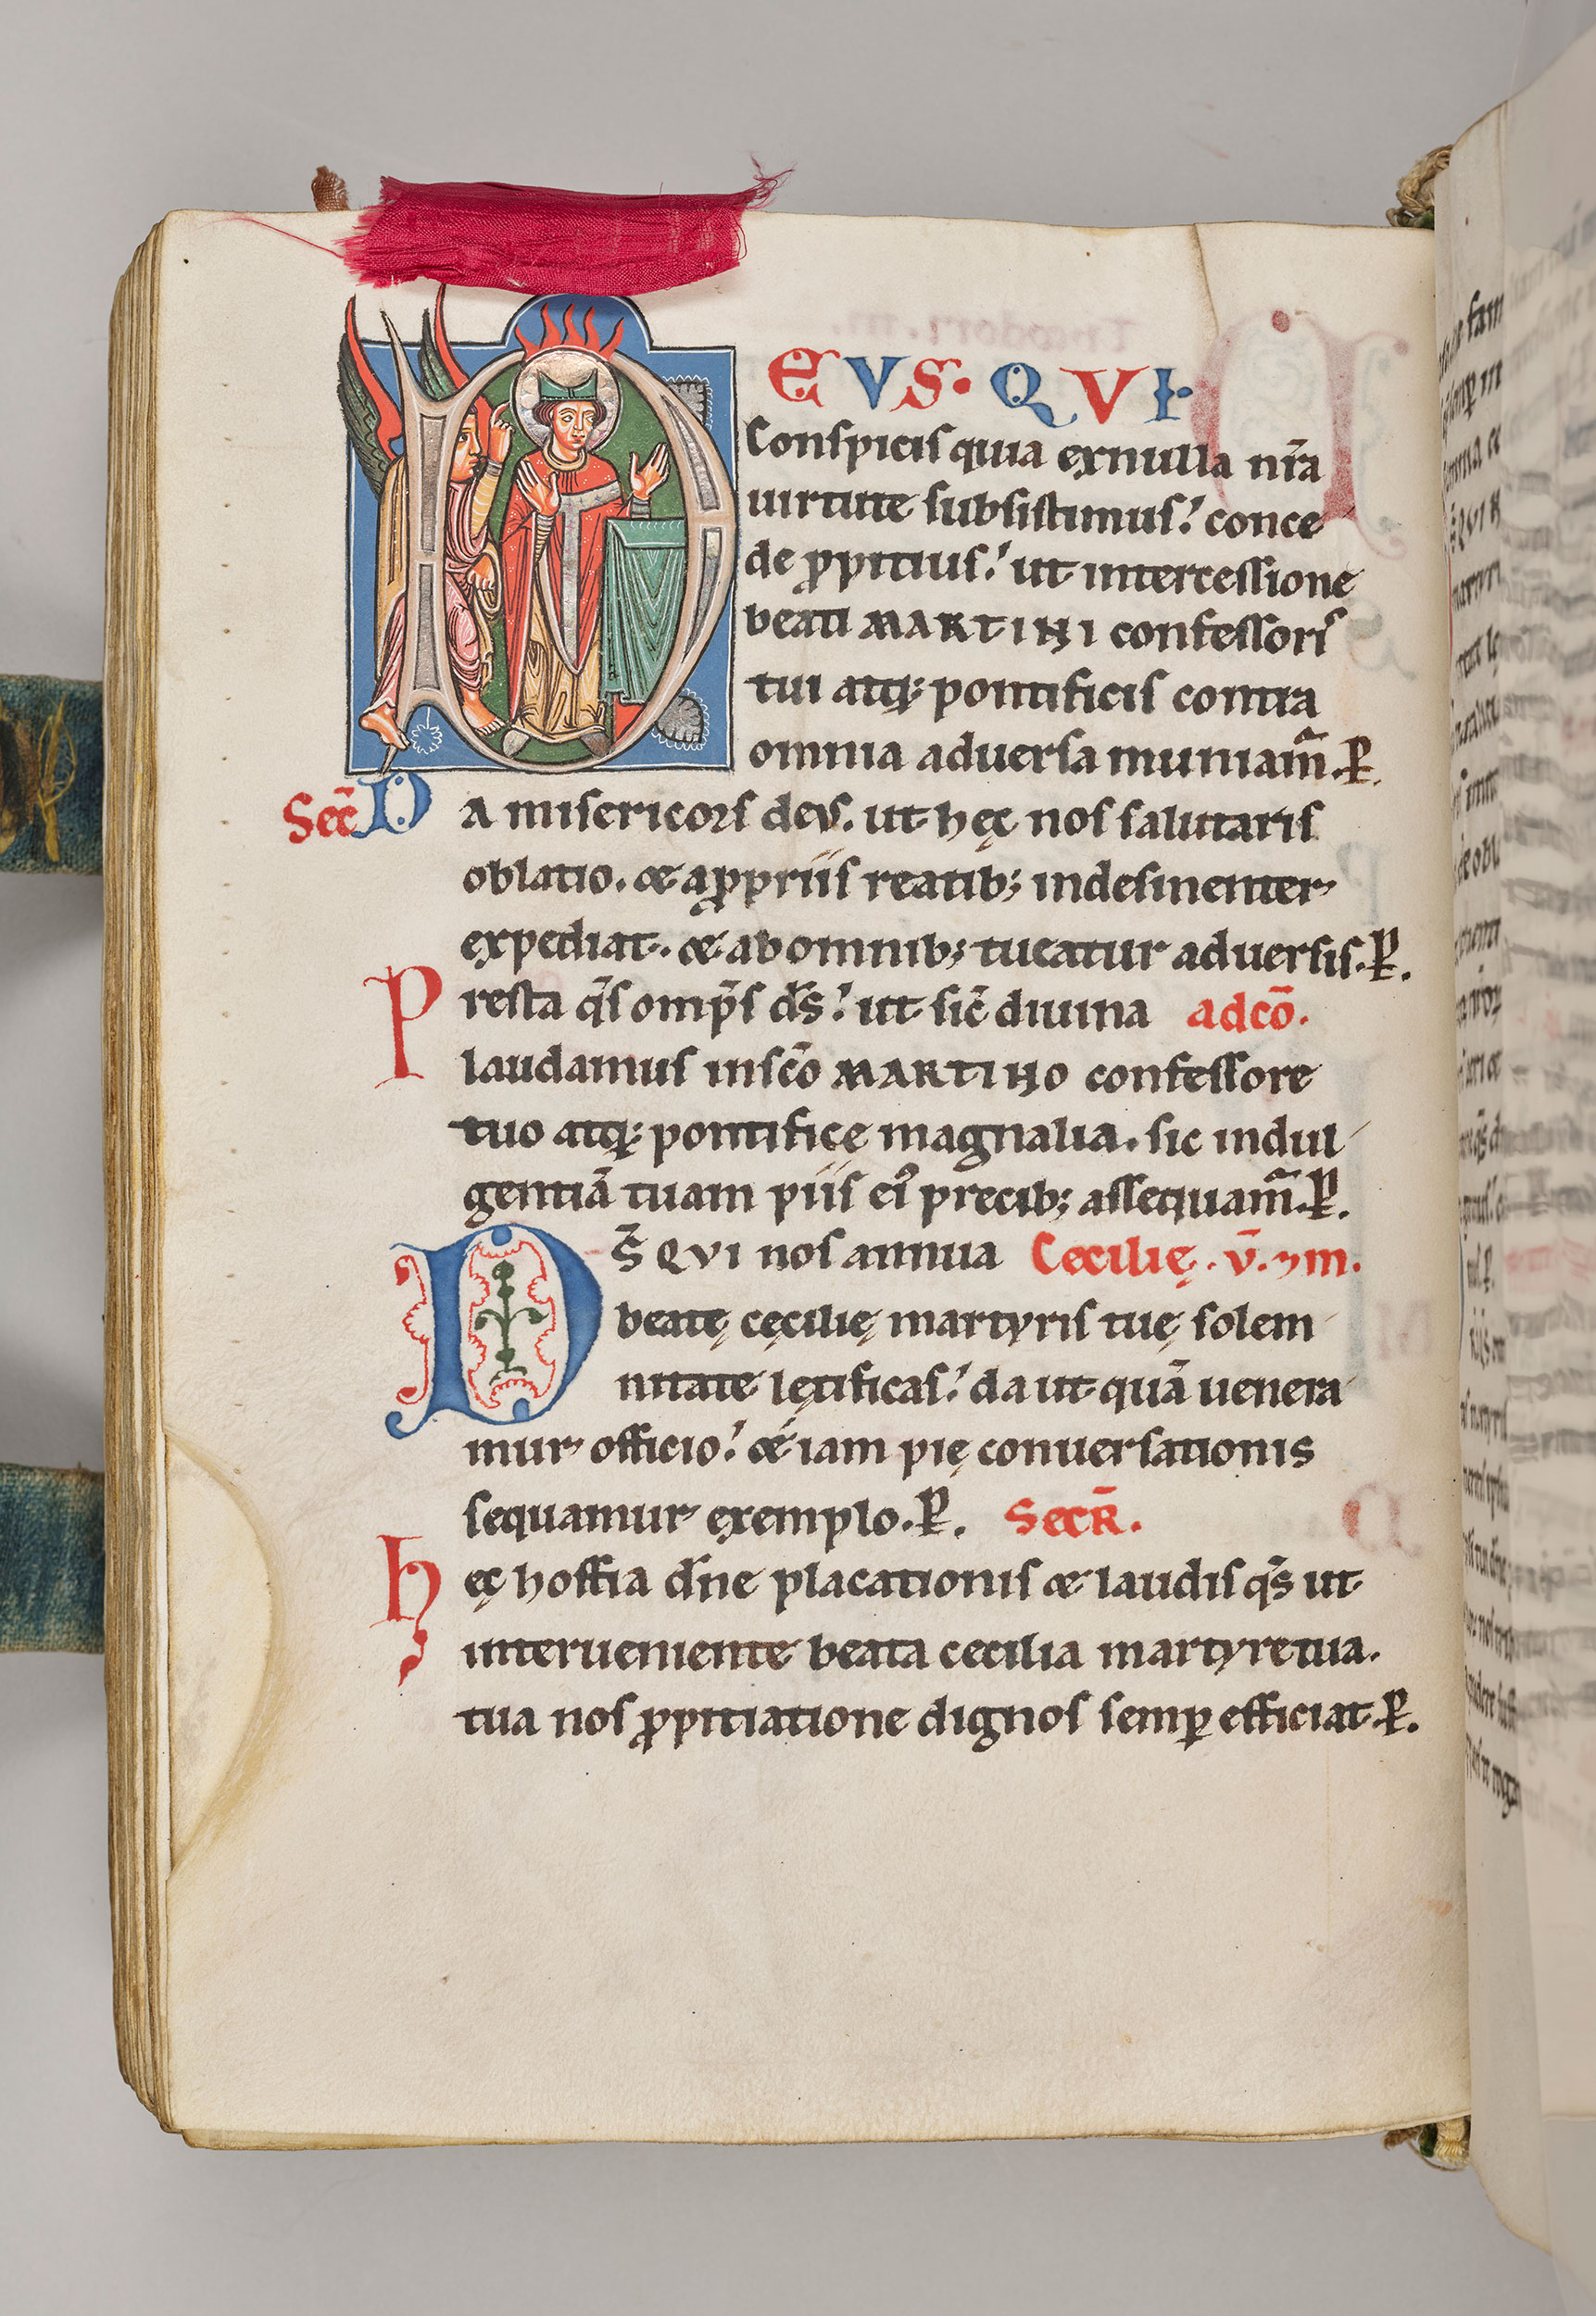 DEVS· QVI·
Conspicis quia exnulla nr̄a
uirtute subsistimus; conce
de ꝓpitius; ut intercessione
beati MARTINI confessoris
tui atq; pontificis contra
omnia aduersa muniam̄. P̱.
Sec̄ Da misericors deus. ut hęc nos salutaris
oblatio. & aꝓpriis reatib; indesinenter
expediat. & ab omnib; tueatur aduersis. P̱.
Presta q̄s omp̄s d̄s; ut sic̄ diuina adcō.
laudamus insc̄o MARTINO confessore
tuo atq; pontifice magnalia. sic indul
gentiā tuam piis ei᾽ precib; assequam̄. P̱.
DS̄ QVI nos annua Cecilię. v̄. ⁊ m.
beatę cęcilię martyris tuę solem
nitate lętificas; da ut quā uenera
mur officio; & iam pię conuersationis
sequamur exemplo. P̱. SecR̄.
Hęc hostia dn̄e placationis & laudis q̄s ut
interueniente beata cecilia martyre tua.
tua nos ꝓpitiatione dignos semꝑ efficiat. P̱.